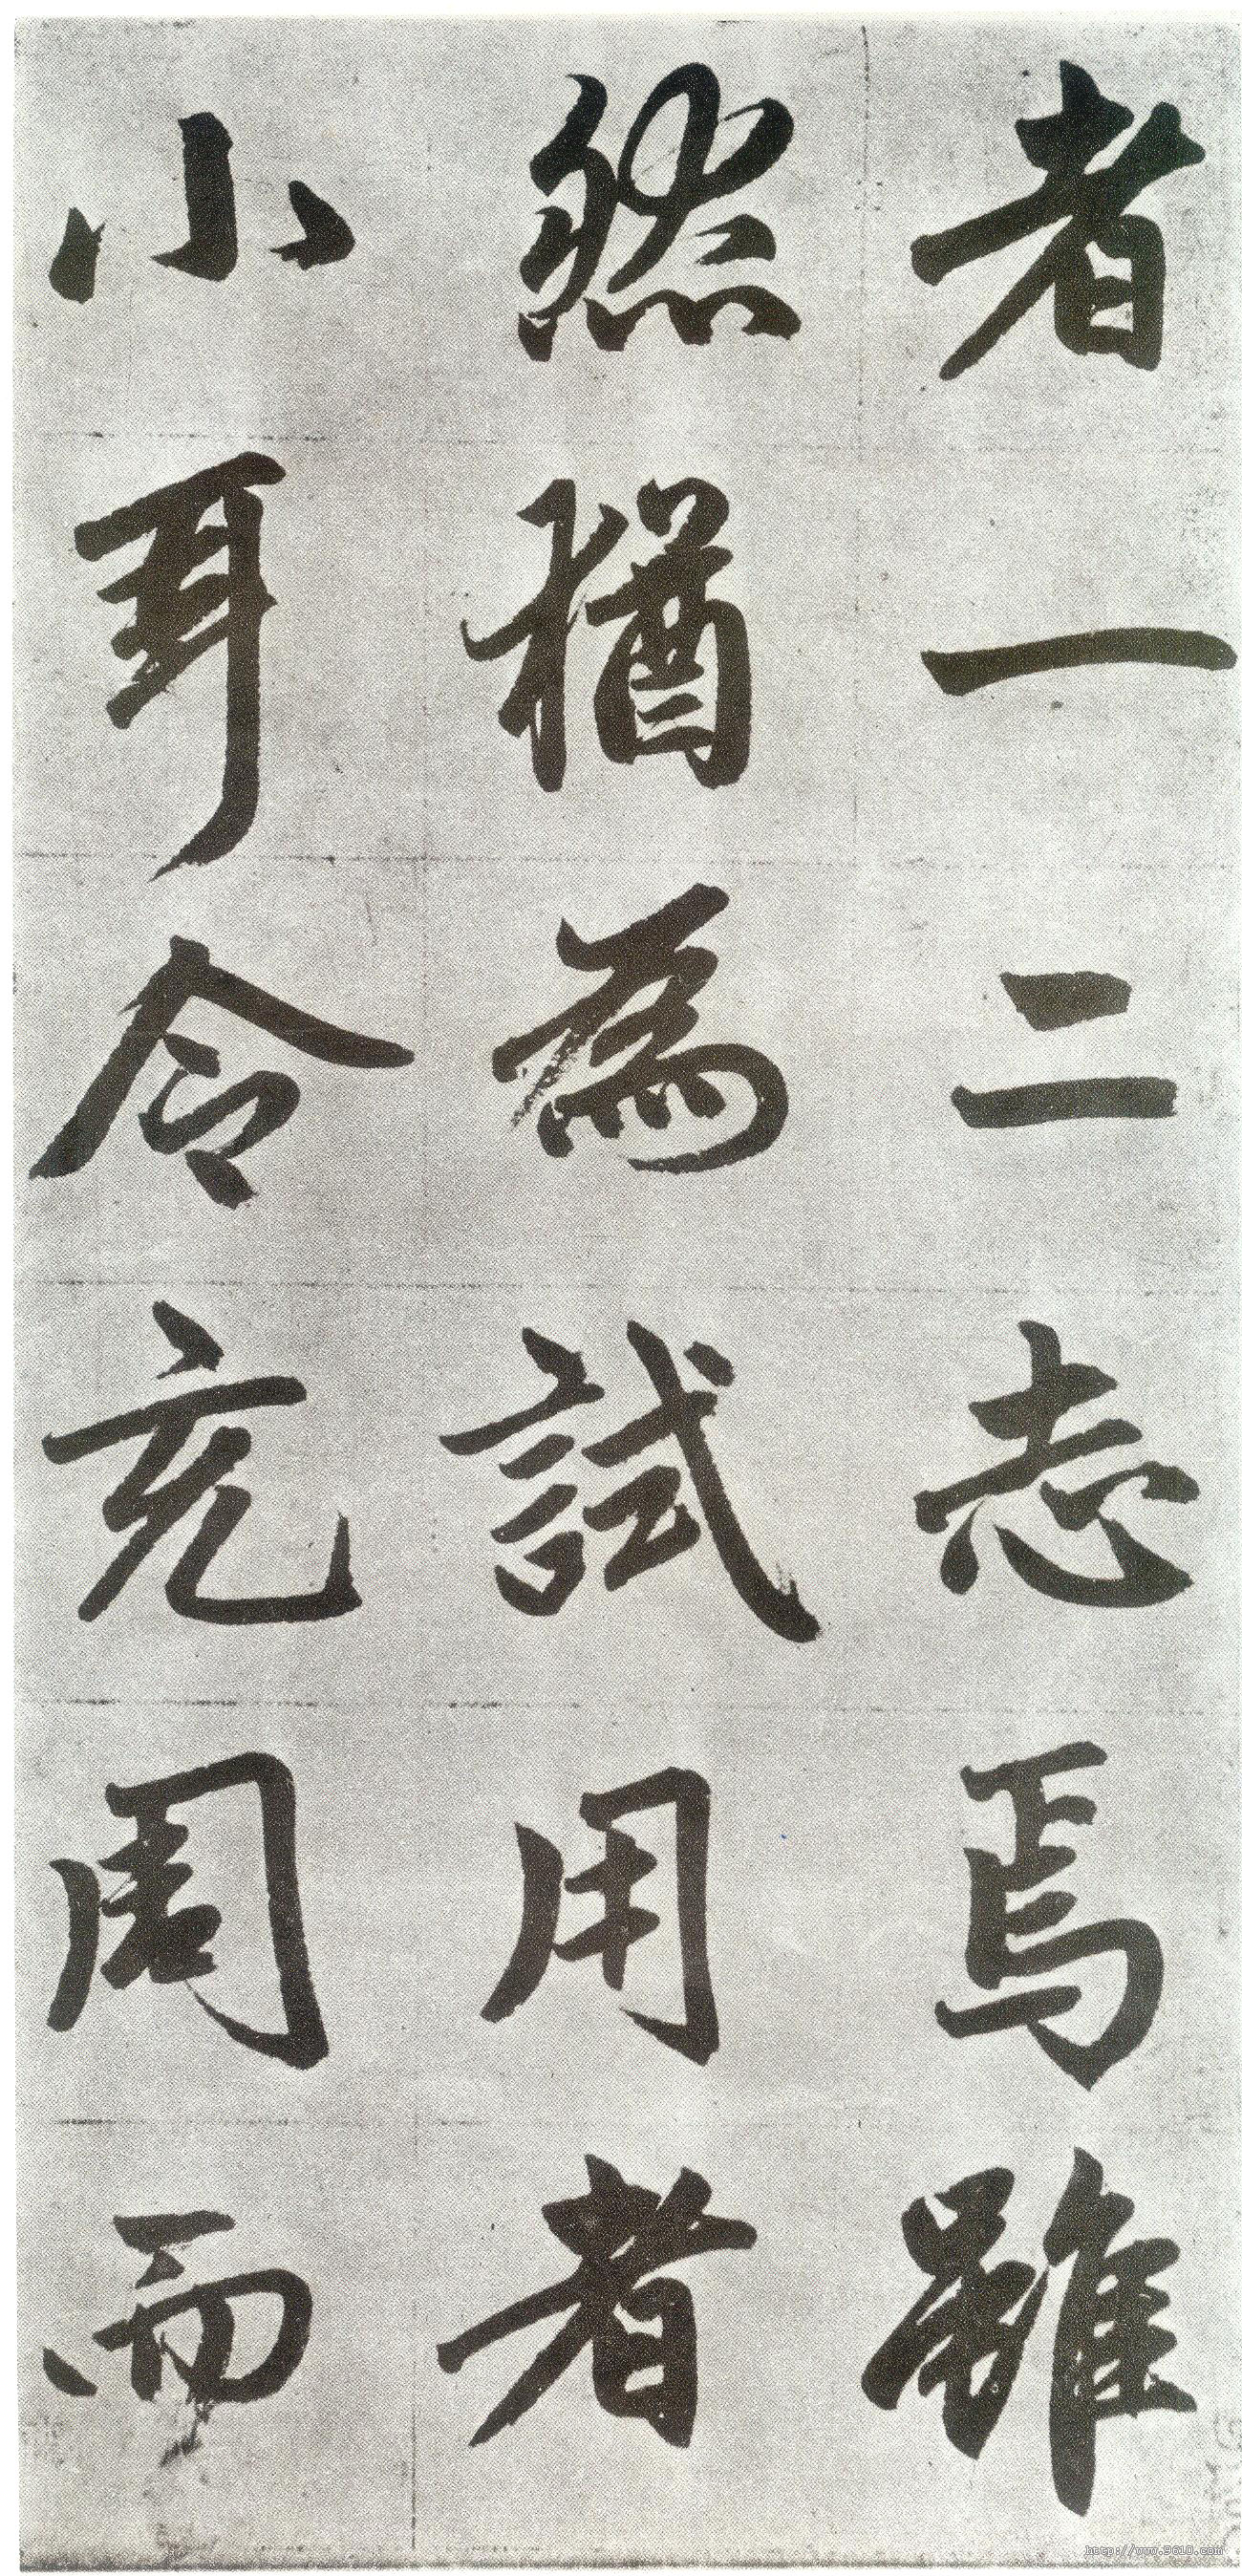 者一二志焉雖
然猶為試用者
小耳令充周而
http://www.9610.com